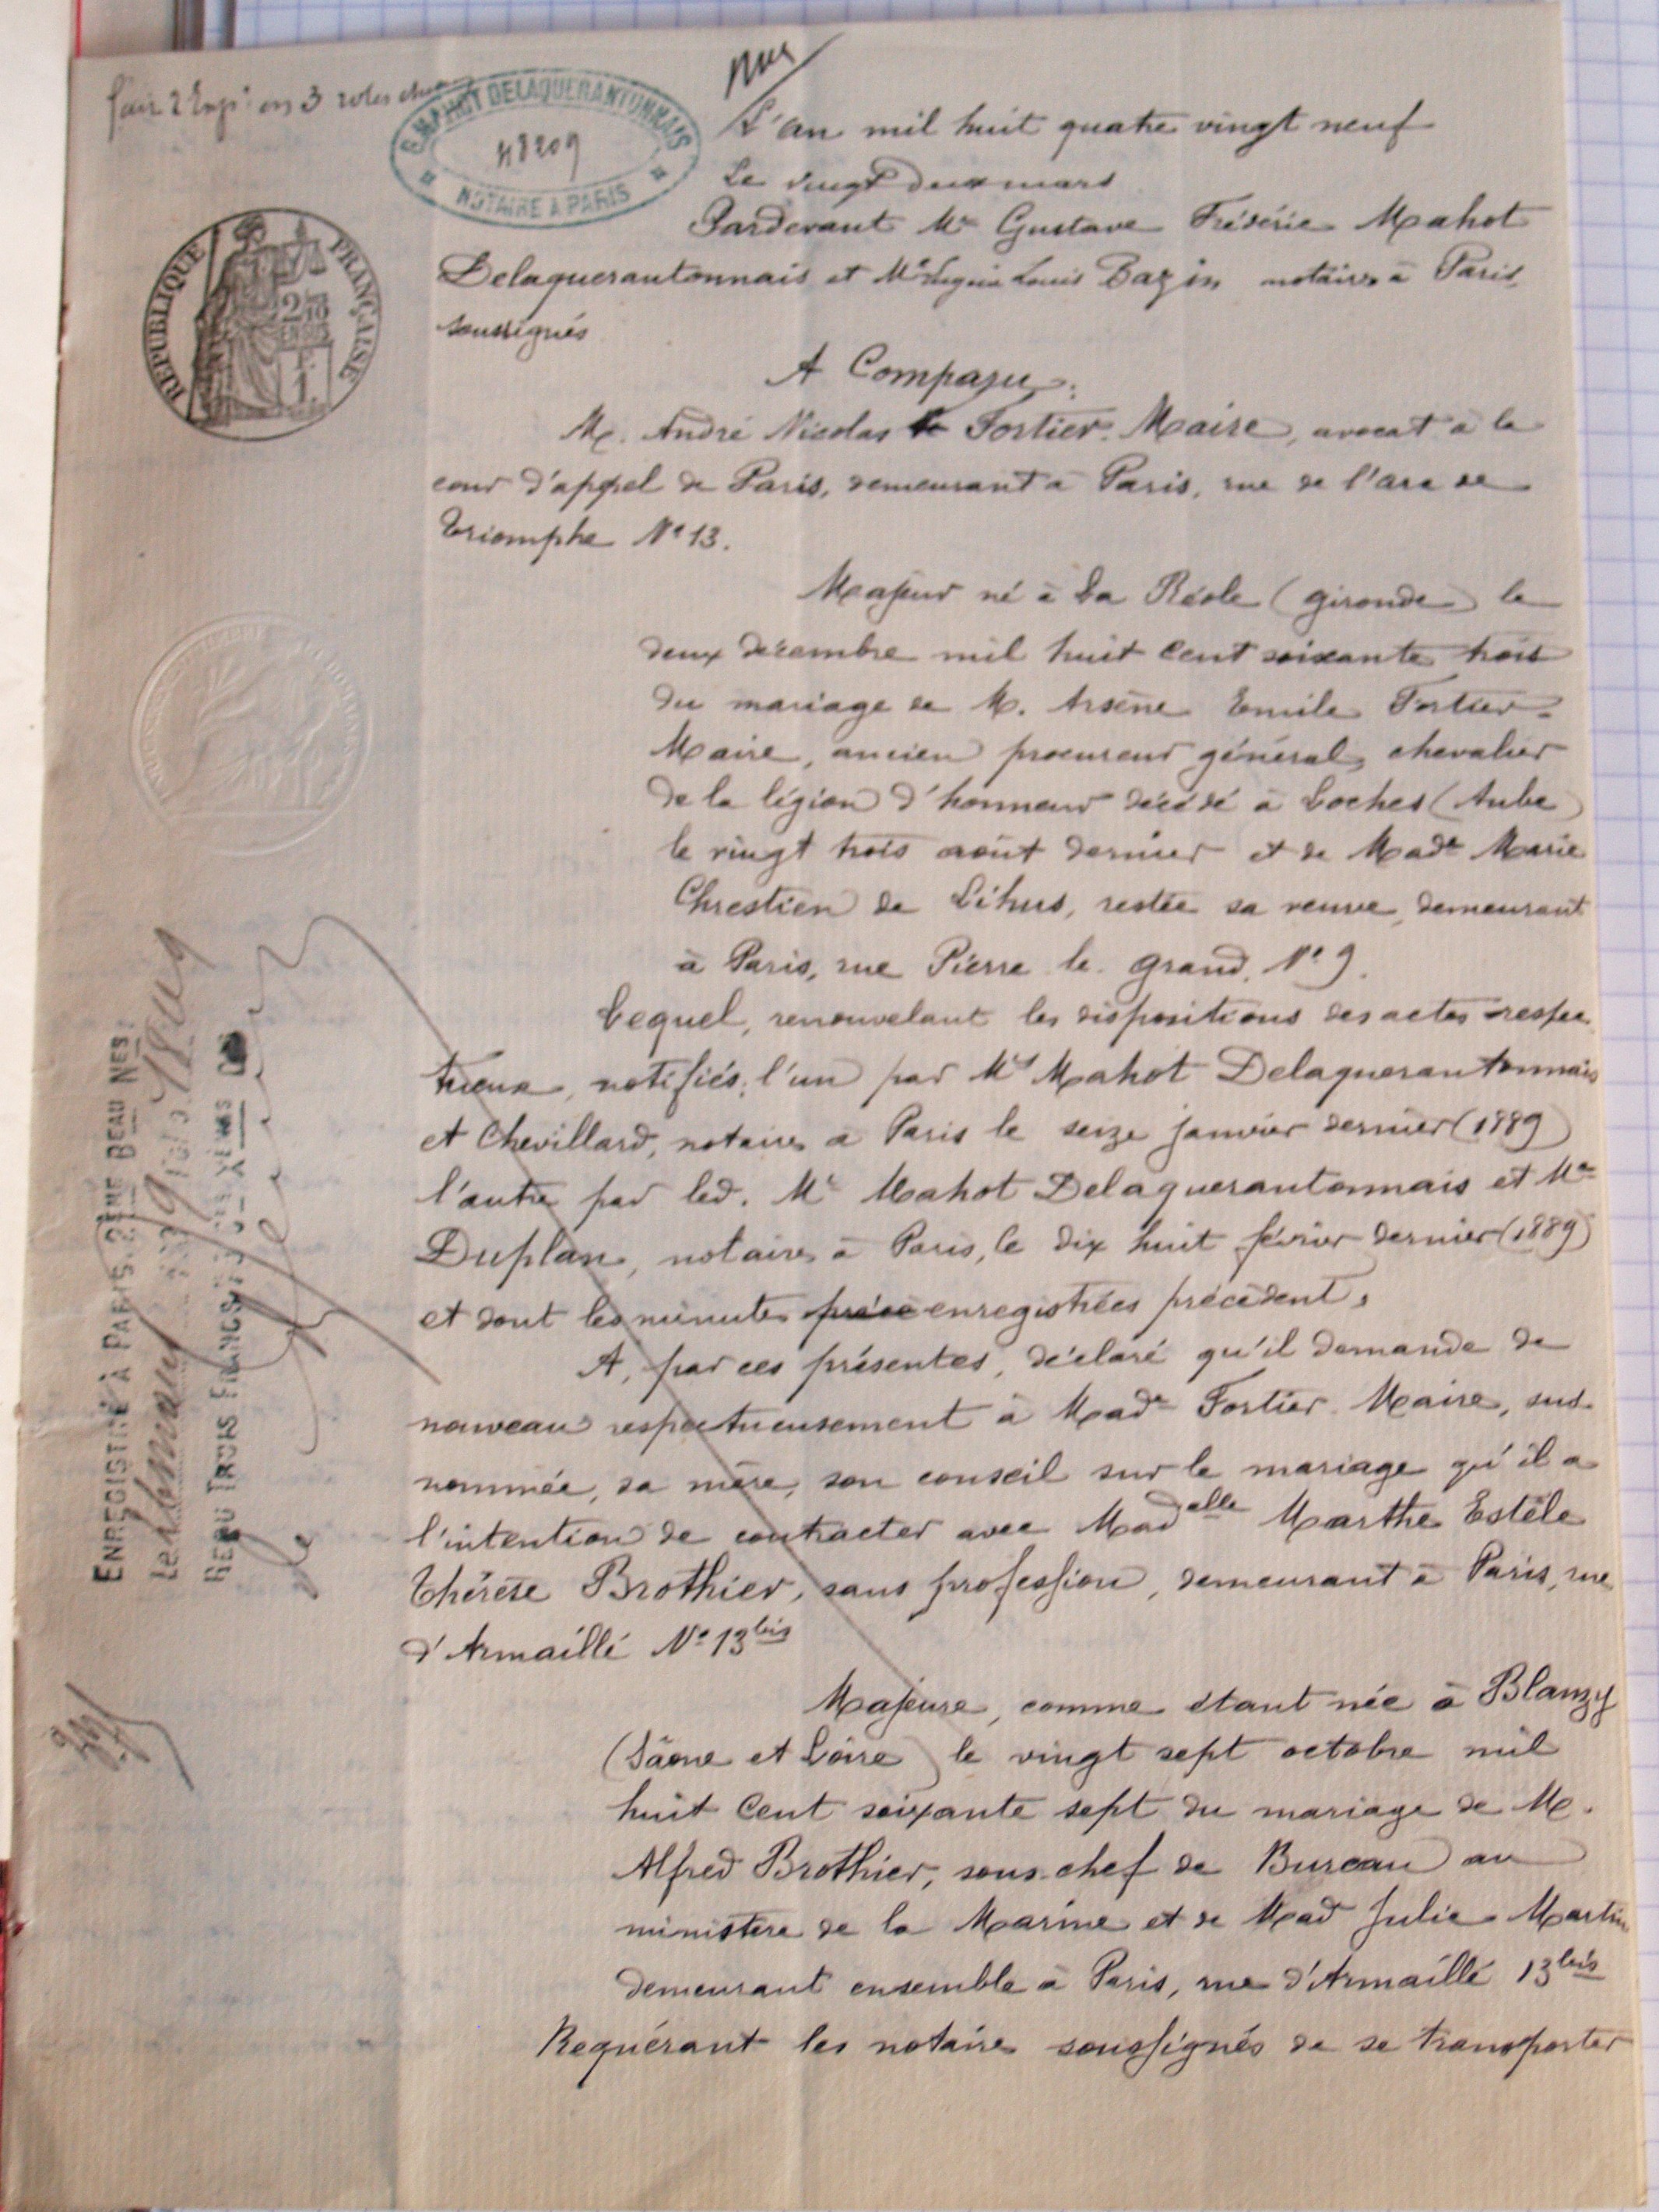 G. MAHOT DELAQUERANTONNAIS
48209
NOTAIRE A PARIS
RÉPUBLIQUE FRANÇAISE
L'an mil huit quatre vingt neuf
Le vingt deux mars
Pardevant Me Gustave Frédéric Mahot
Delaquerantonnais et Me Louis Bazin notaires à Paris,
soussignés
A Comparu:
M. André Nicolas Fortier-Maire, avocat à la
cour d'appel de Paris, demeurant à Paris, rue de l'arc de
Triomphe No 13.
Majeur né à La Réole (gironde) le
deux décembre mil huit cent soixante trois
du mariage de M. Arsène Emile Fortier-
Maire, ancien procureur général, chevalier
de la légion d'honneur décédé à Loches (Aube)
le vingt trois août dernier et de Made Marie
Chrestien de Lihus, restée sa veuve, demeurant
à Paris, rue Pierre le grand, No 9.
Lequel, renouvelant les dispositions des actes respec
tueux, notifiés, l'un par Mes Mahot Delaquerantonnais
et Chevillard, notaires à Paris le seize janvier dernier (1889)
l'autre par led. Me Mahot Delaquerantonnais et Me
Duplan, notaires à Paris, le dix huit février dernier (1889)
et dont les minutes enregistrées précèdent,
A, par ces présentes, déclaré qu'il demande de
nouveau respectueusement à Made Fortier-Maire, sus-
nommée, sa mère, son conseil sur le mariage qu'il a
l'intention de contracter avec Madelle Marthe Estèle
Thérèse Brothier, sans profession, demeurant à Paris, rue
d'Armaillé No 13 bis
Majeure, comme étant née à Blanzy
(Sâone et Loire) le vingt sept octobre mil
huit cent soixante sept du mariage de M.
Alfred Brothier, sous-chef de Bureau au
ministère de la Marine et de Mad Julie Martin
demeurant ensemble à Paris, rue d'Armaillé 13 bis
Requérant les notaires soussignés de se transporter
ENREGISTRÉ À PARIS 2ÈME BEAU NES
REÇU TROIS FRANCS